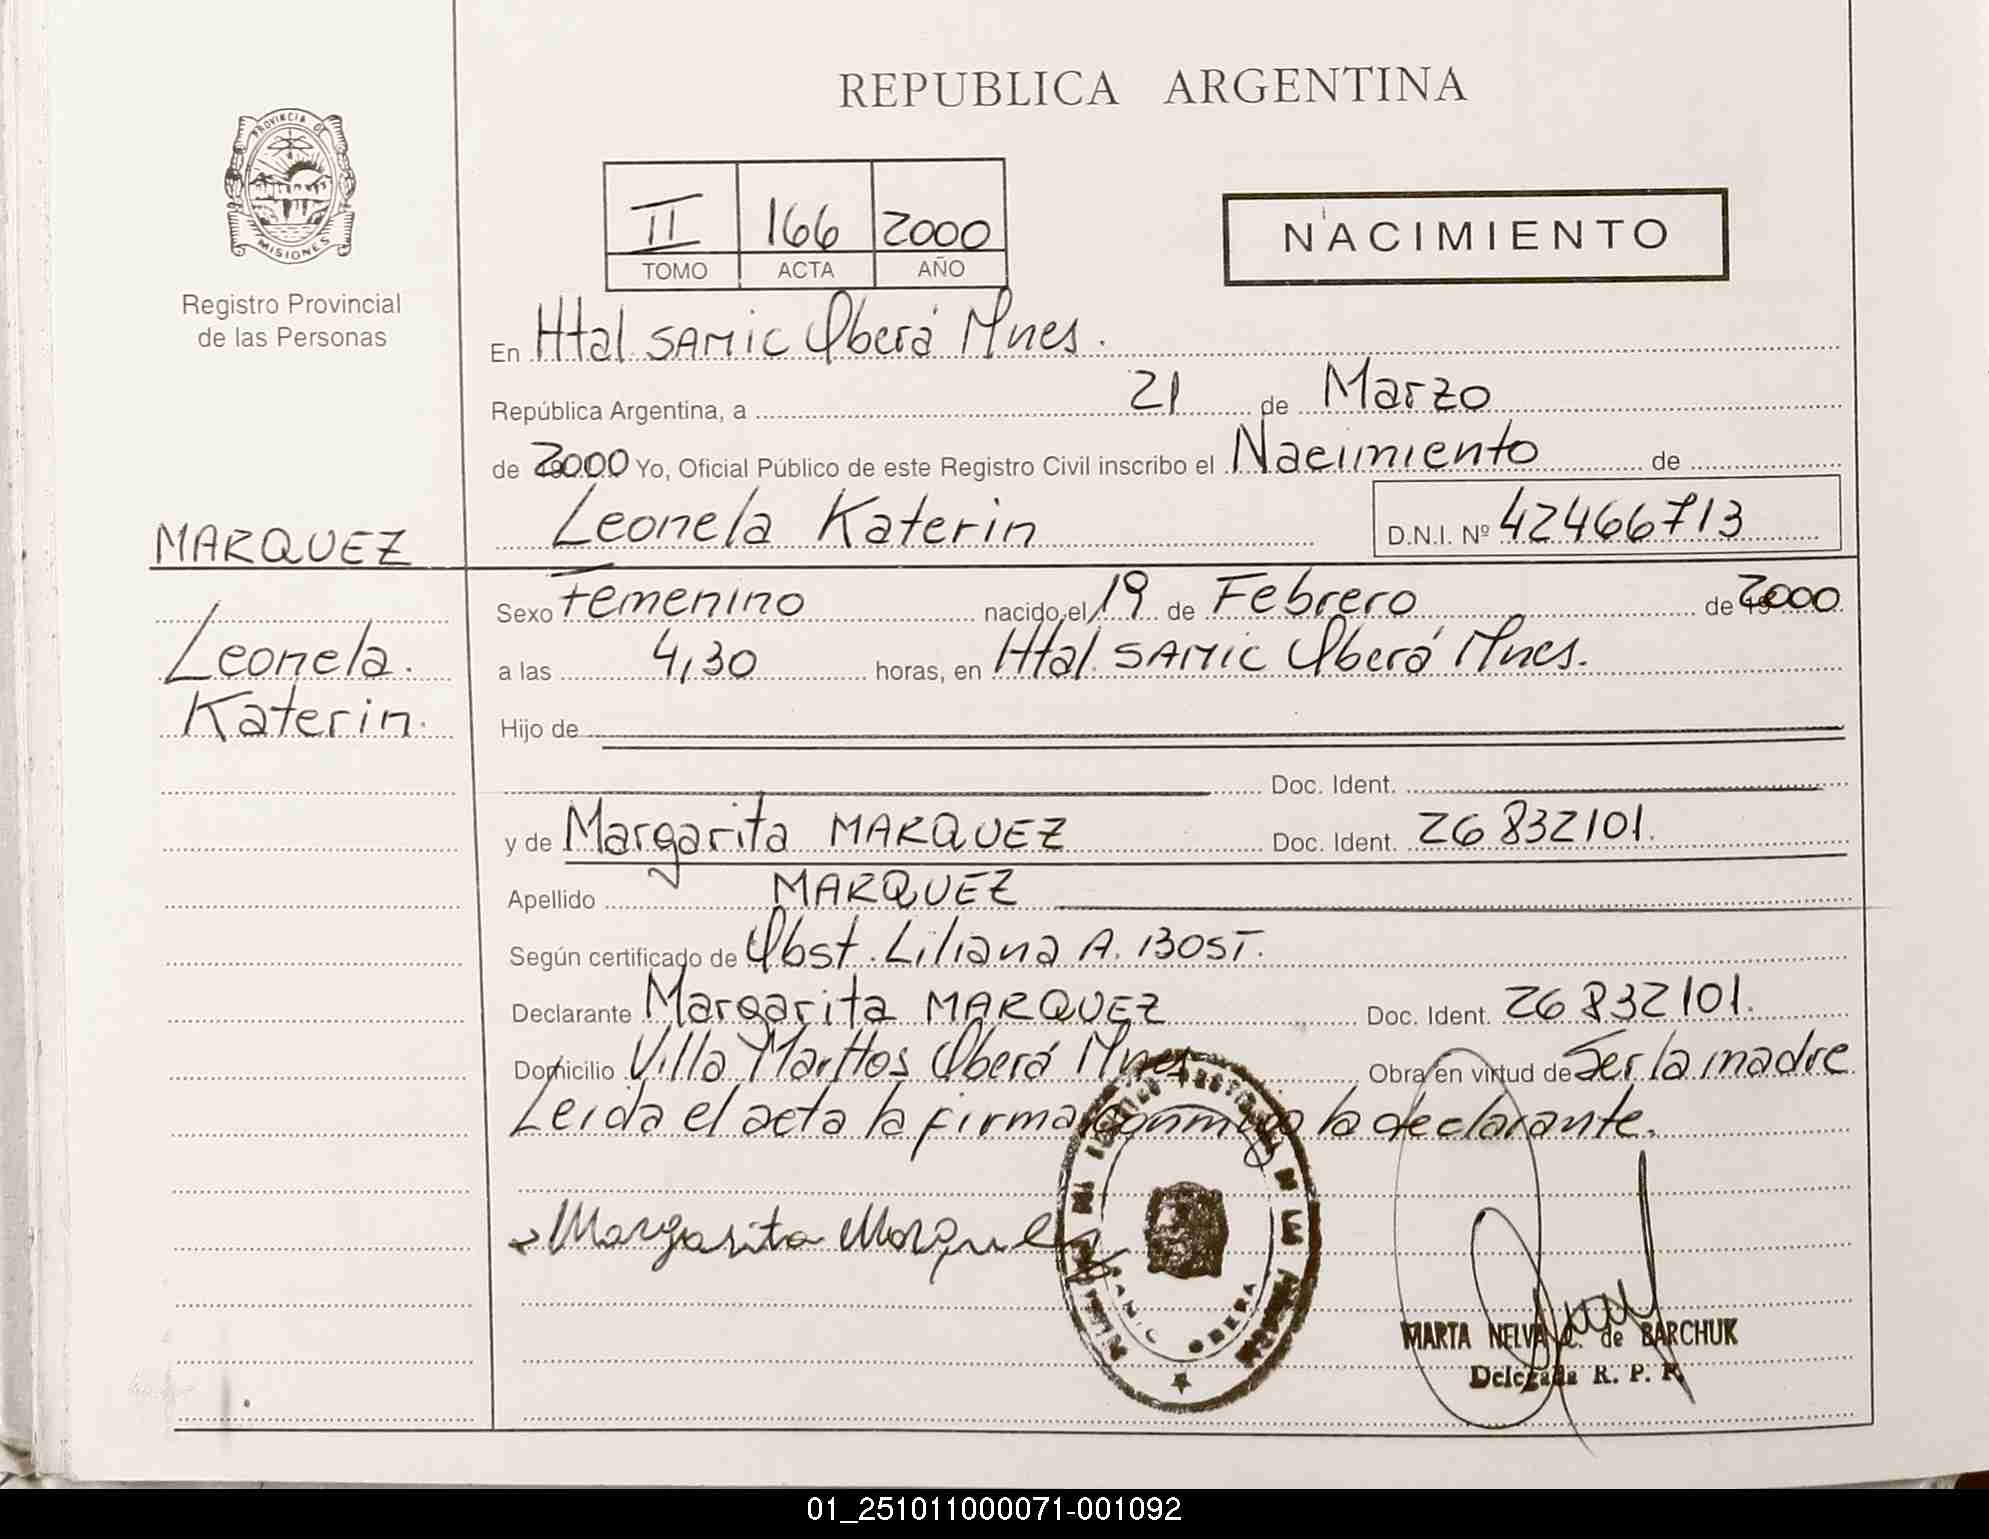 REPUBLICA ARGENTINA
PROVINCIA DE
MISIONES
Registro Provincial
de las Personas
II 166 2000
TOMO ACTA AÑO
NACIMIENTO
En Htal SAMIC Oberá Mnes.
República Argentina, a 21 de Marzo
de 2000 Yo, Oficial Público de este Registro Civil inscribo el Nacimiento de
Leonela Katerin D.N.I. Nº 42466713
MARQUEZ
Leonela.
Katerin.
Sexo Femenino nacido el 19 de Febrero de 2000
a las 4,30 horas, en Htal. SAMIC Oberá Mnes.
Hijo de
Doc. Ident.
y de Margarita MARQUEZ Doc. Ident. 26832101.
Apellido MARQUEZ
Según certificado de Obst. Liliana A. BOST.
Declarante Margarita MARQUEZ Doc. Ident. 26832101.
Domicilio Villa Martos Oberá Mnes Obra en virtud de Ser la madre
Leida el acta la firma conmigo la declarante.
Margarita Marquez
OBERA
MARTA NELVA C. de BARCHUK
Delegada R. P. P.
01_251011000071-001092